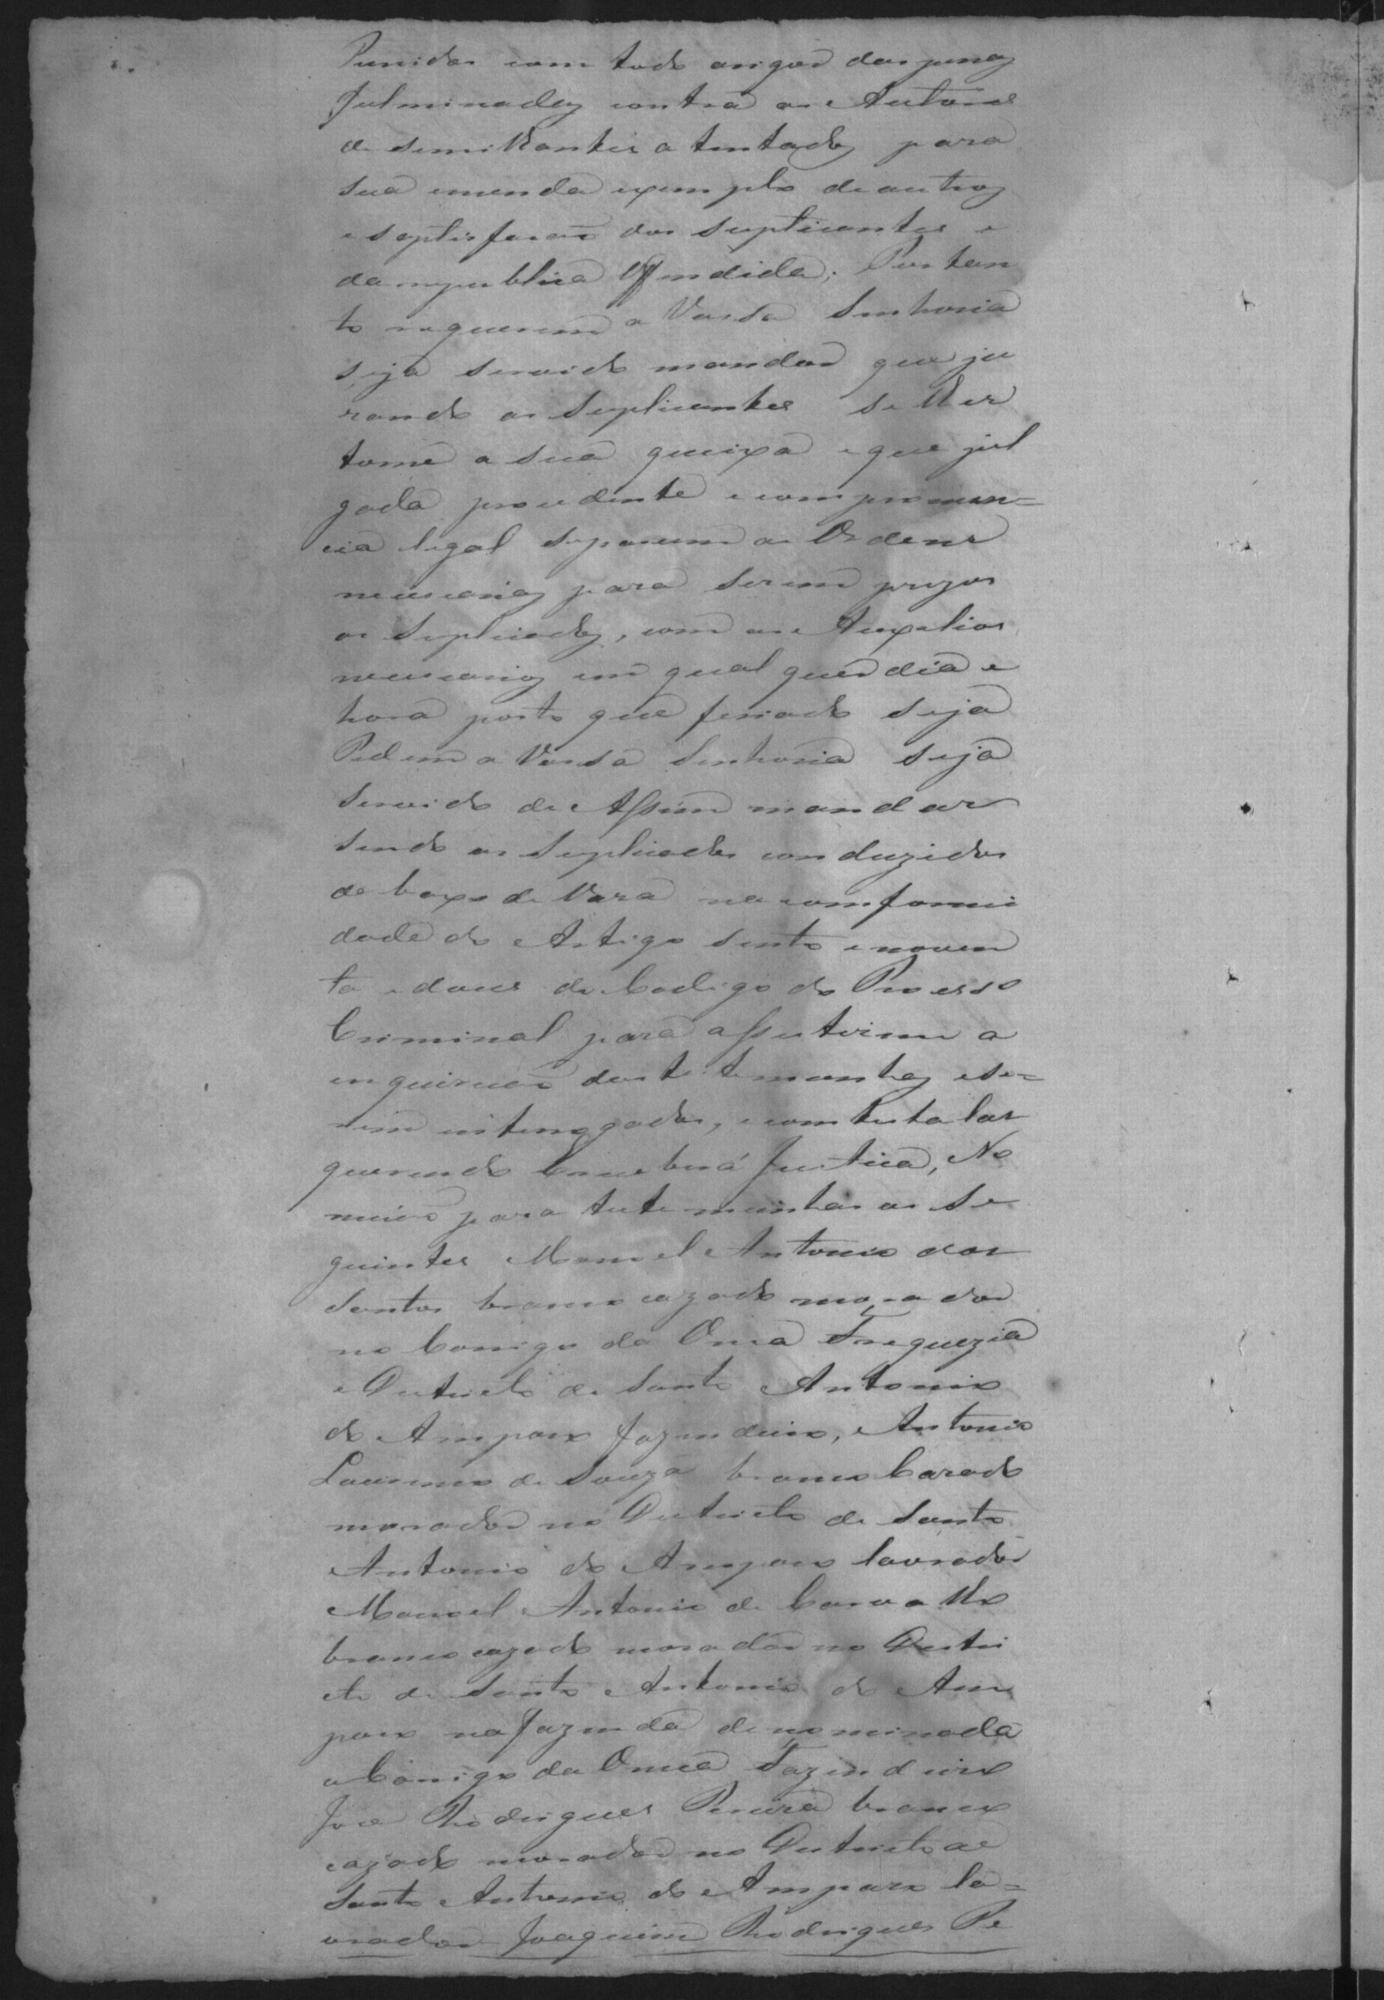 Punidos com todo origor das penas
fulminadas contra os Autores
de semilhantes atentados para
sua emenda exemplo de outros
e satisfacão dos suplicantes e
da republica Offendida; Portan
to requerem a Vossa Senhoria
seja servido mandar que ju
rando os Suplicantes se lhes
tome a sua queixa e que jul
gada procedente e com pronun=
cia legal se passem as Ordens
necessarias para serem prezos
os Suplicados, com os Auxelios
necessarios em qual quer dia e
hora posto que feriado seja
Pedem a Vossa Senhoria seja
servido de Assim mandar
sendo os Suplicados conduzidos
de baxo de Vara na comformi
dade do Artigo sento e noven
ta e dous do Codigo do Processo
Criminal para assestirem a
enquiricão das testemunhas e se=
rem enterrogados, e contestalas
querendo E recebera Justica, No
meião para testemunhas os Se
guintes Manoel Antonio dos
Santos branco cazado morador
no Corrigo da Onca Freguezia
e Destricto de Santo Antonio
do Amparo fazendeiro, Antonio
Lourenco de Souza branco Carado
morador no Destricto de Santo
Antonio do Amparo lavrador
Manoel Antonio de Carvalho
branco cazado morador no Destri
cto de Santo Antonio do Am
paro na fazenda denominada
o Corrigo da Onca Fazendeiro
Joze Rodrigues Pereira branco
cazado morador no Destricto de
Santo Antonio do Amparo la=
vrador Joaquim Rodrigues Pe